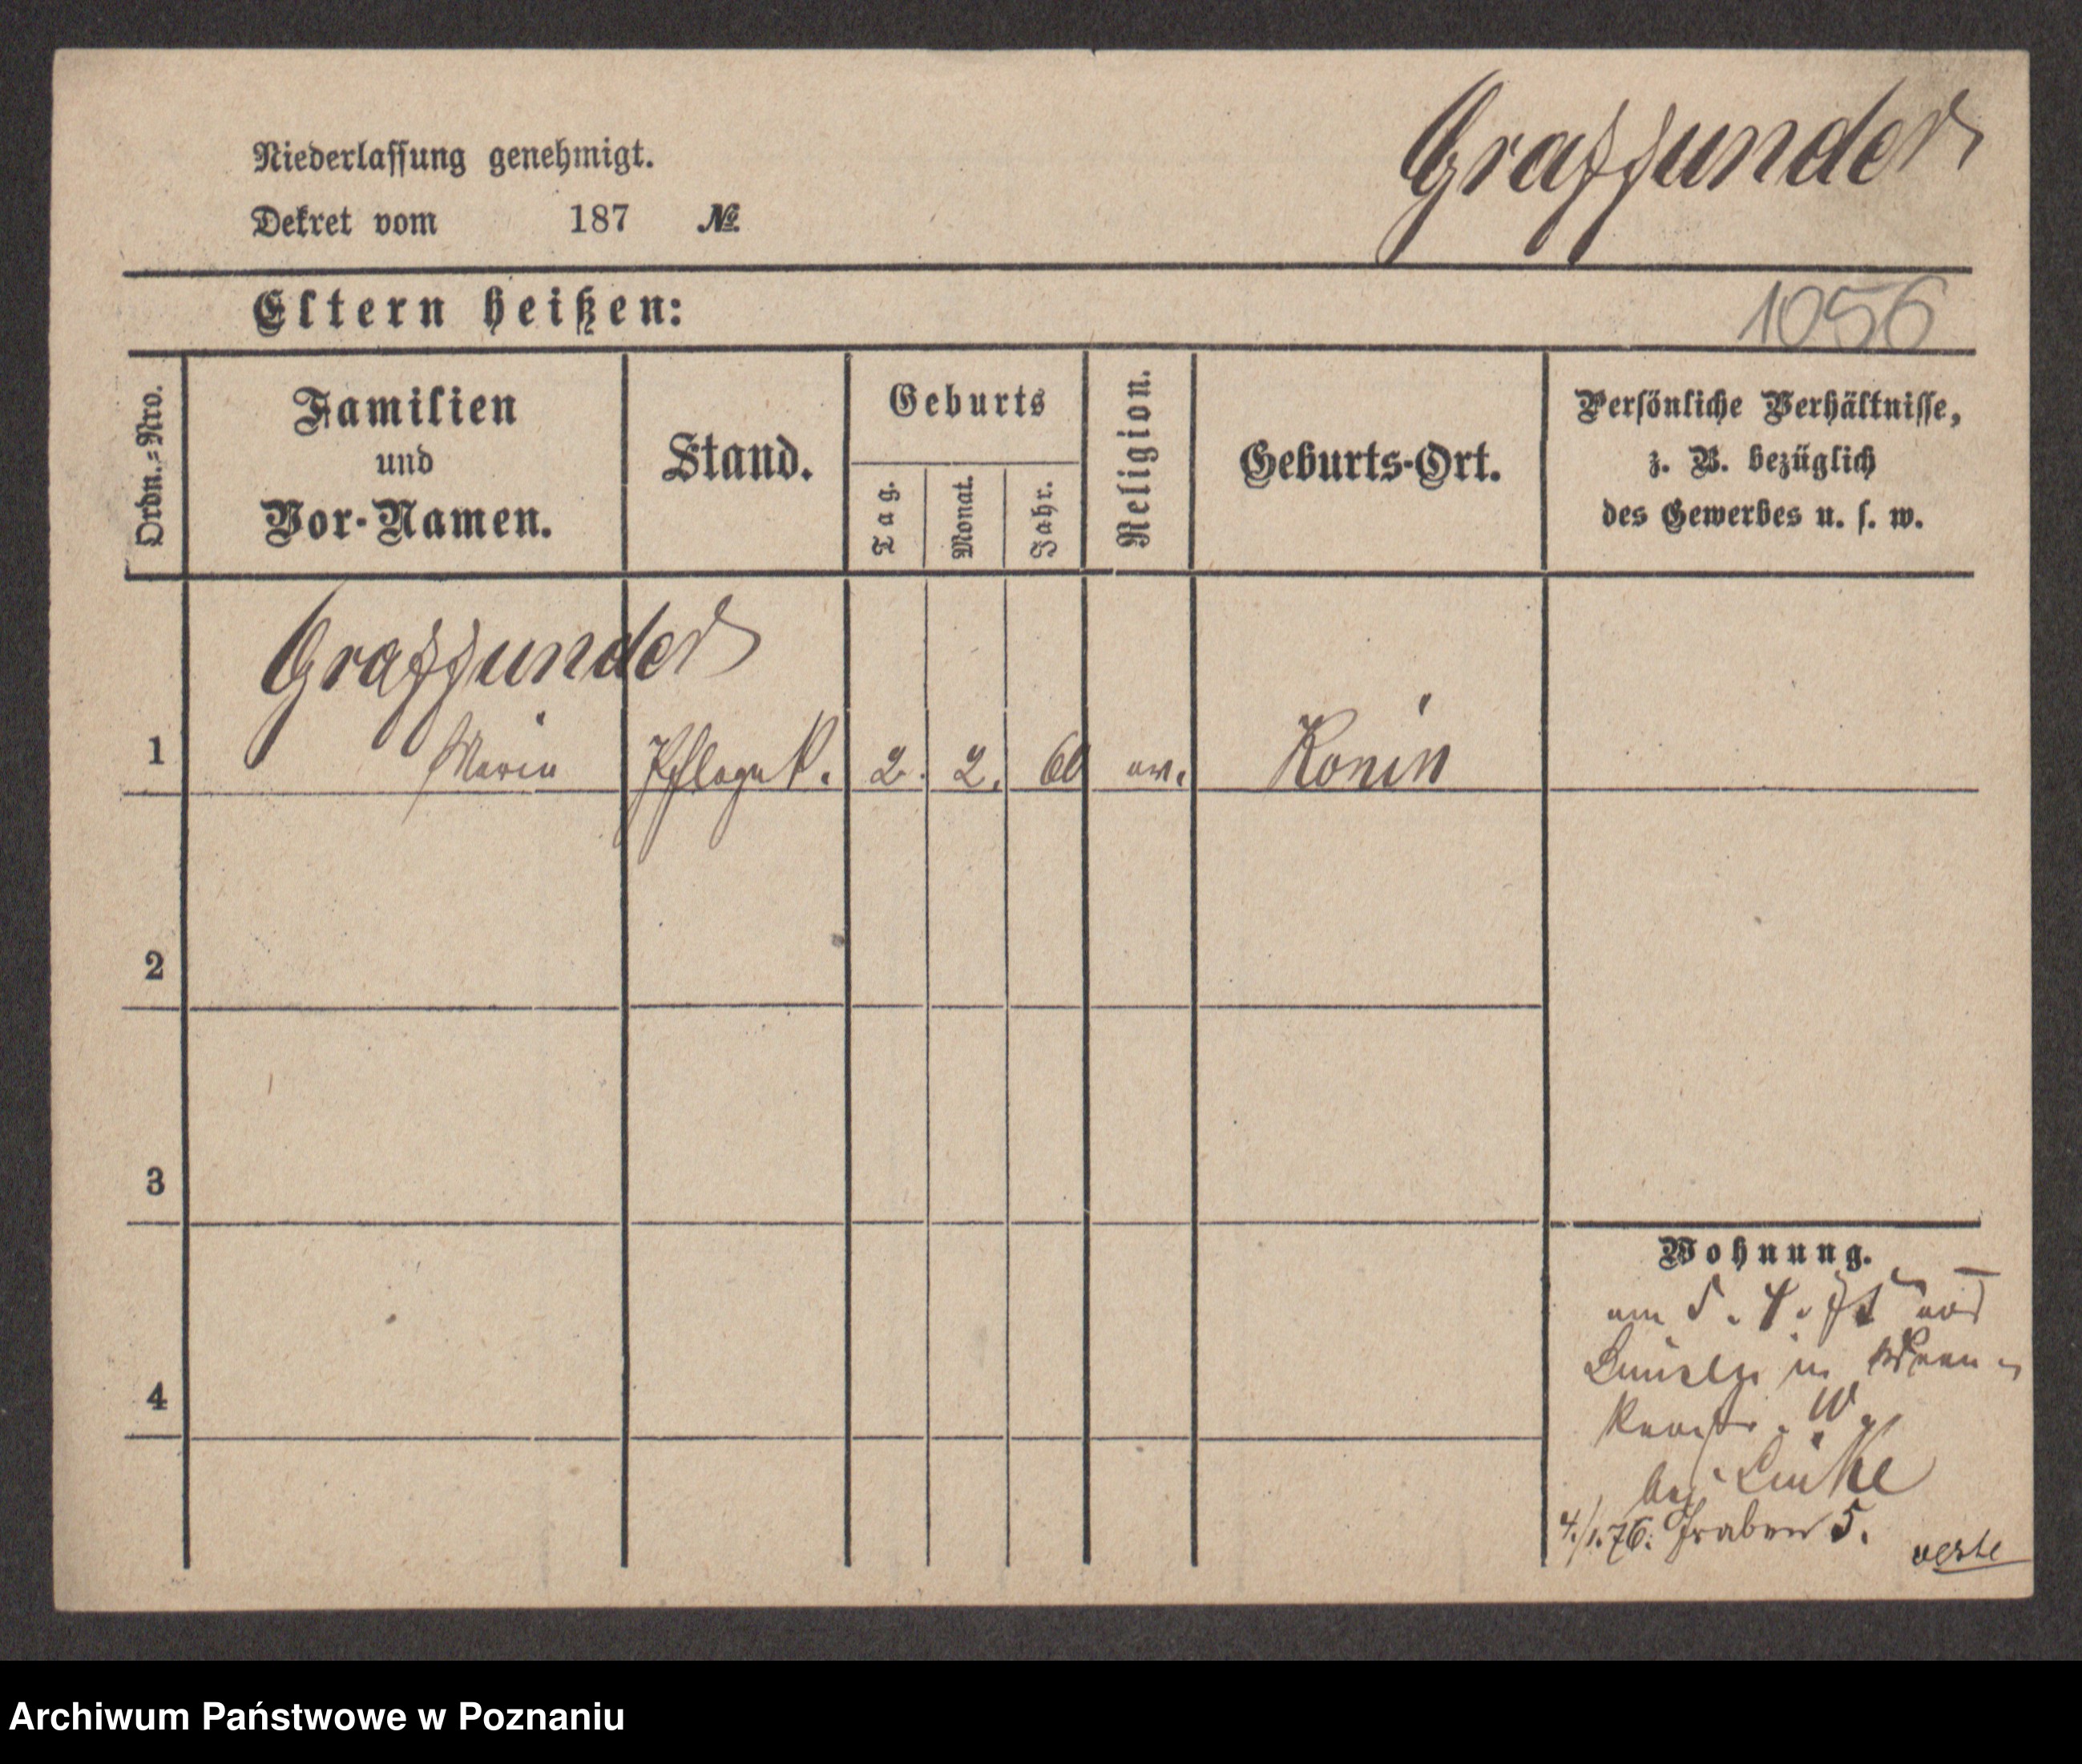 Niederlassung genehmigt.
Dekret vom 187 №
Graffunder
Eltern heißen:
1056
Ordn.-Nro.
Familien
und
Vor-Namen.
Stand.
Geburts
Tag.
Monat.
Jahr.
Religion.
Geburts-Ort.
Persönliche Verhältnisse,
z. B. bezüglich
des Gewerbes u. s. w.
Graffunder
1 Maria 2. 2. 60 ev. Konin
2
3
4
Wohnung.
am 5. 4. 75
in
bei Linke
4./1.76. Graben 5.
verte
Archiwum Państwowe w Poznaniu